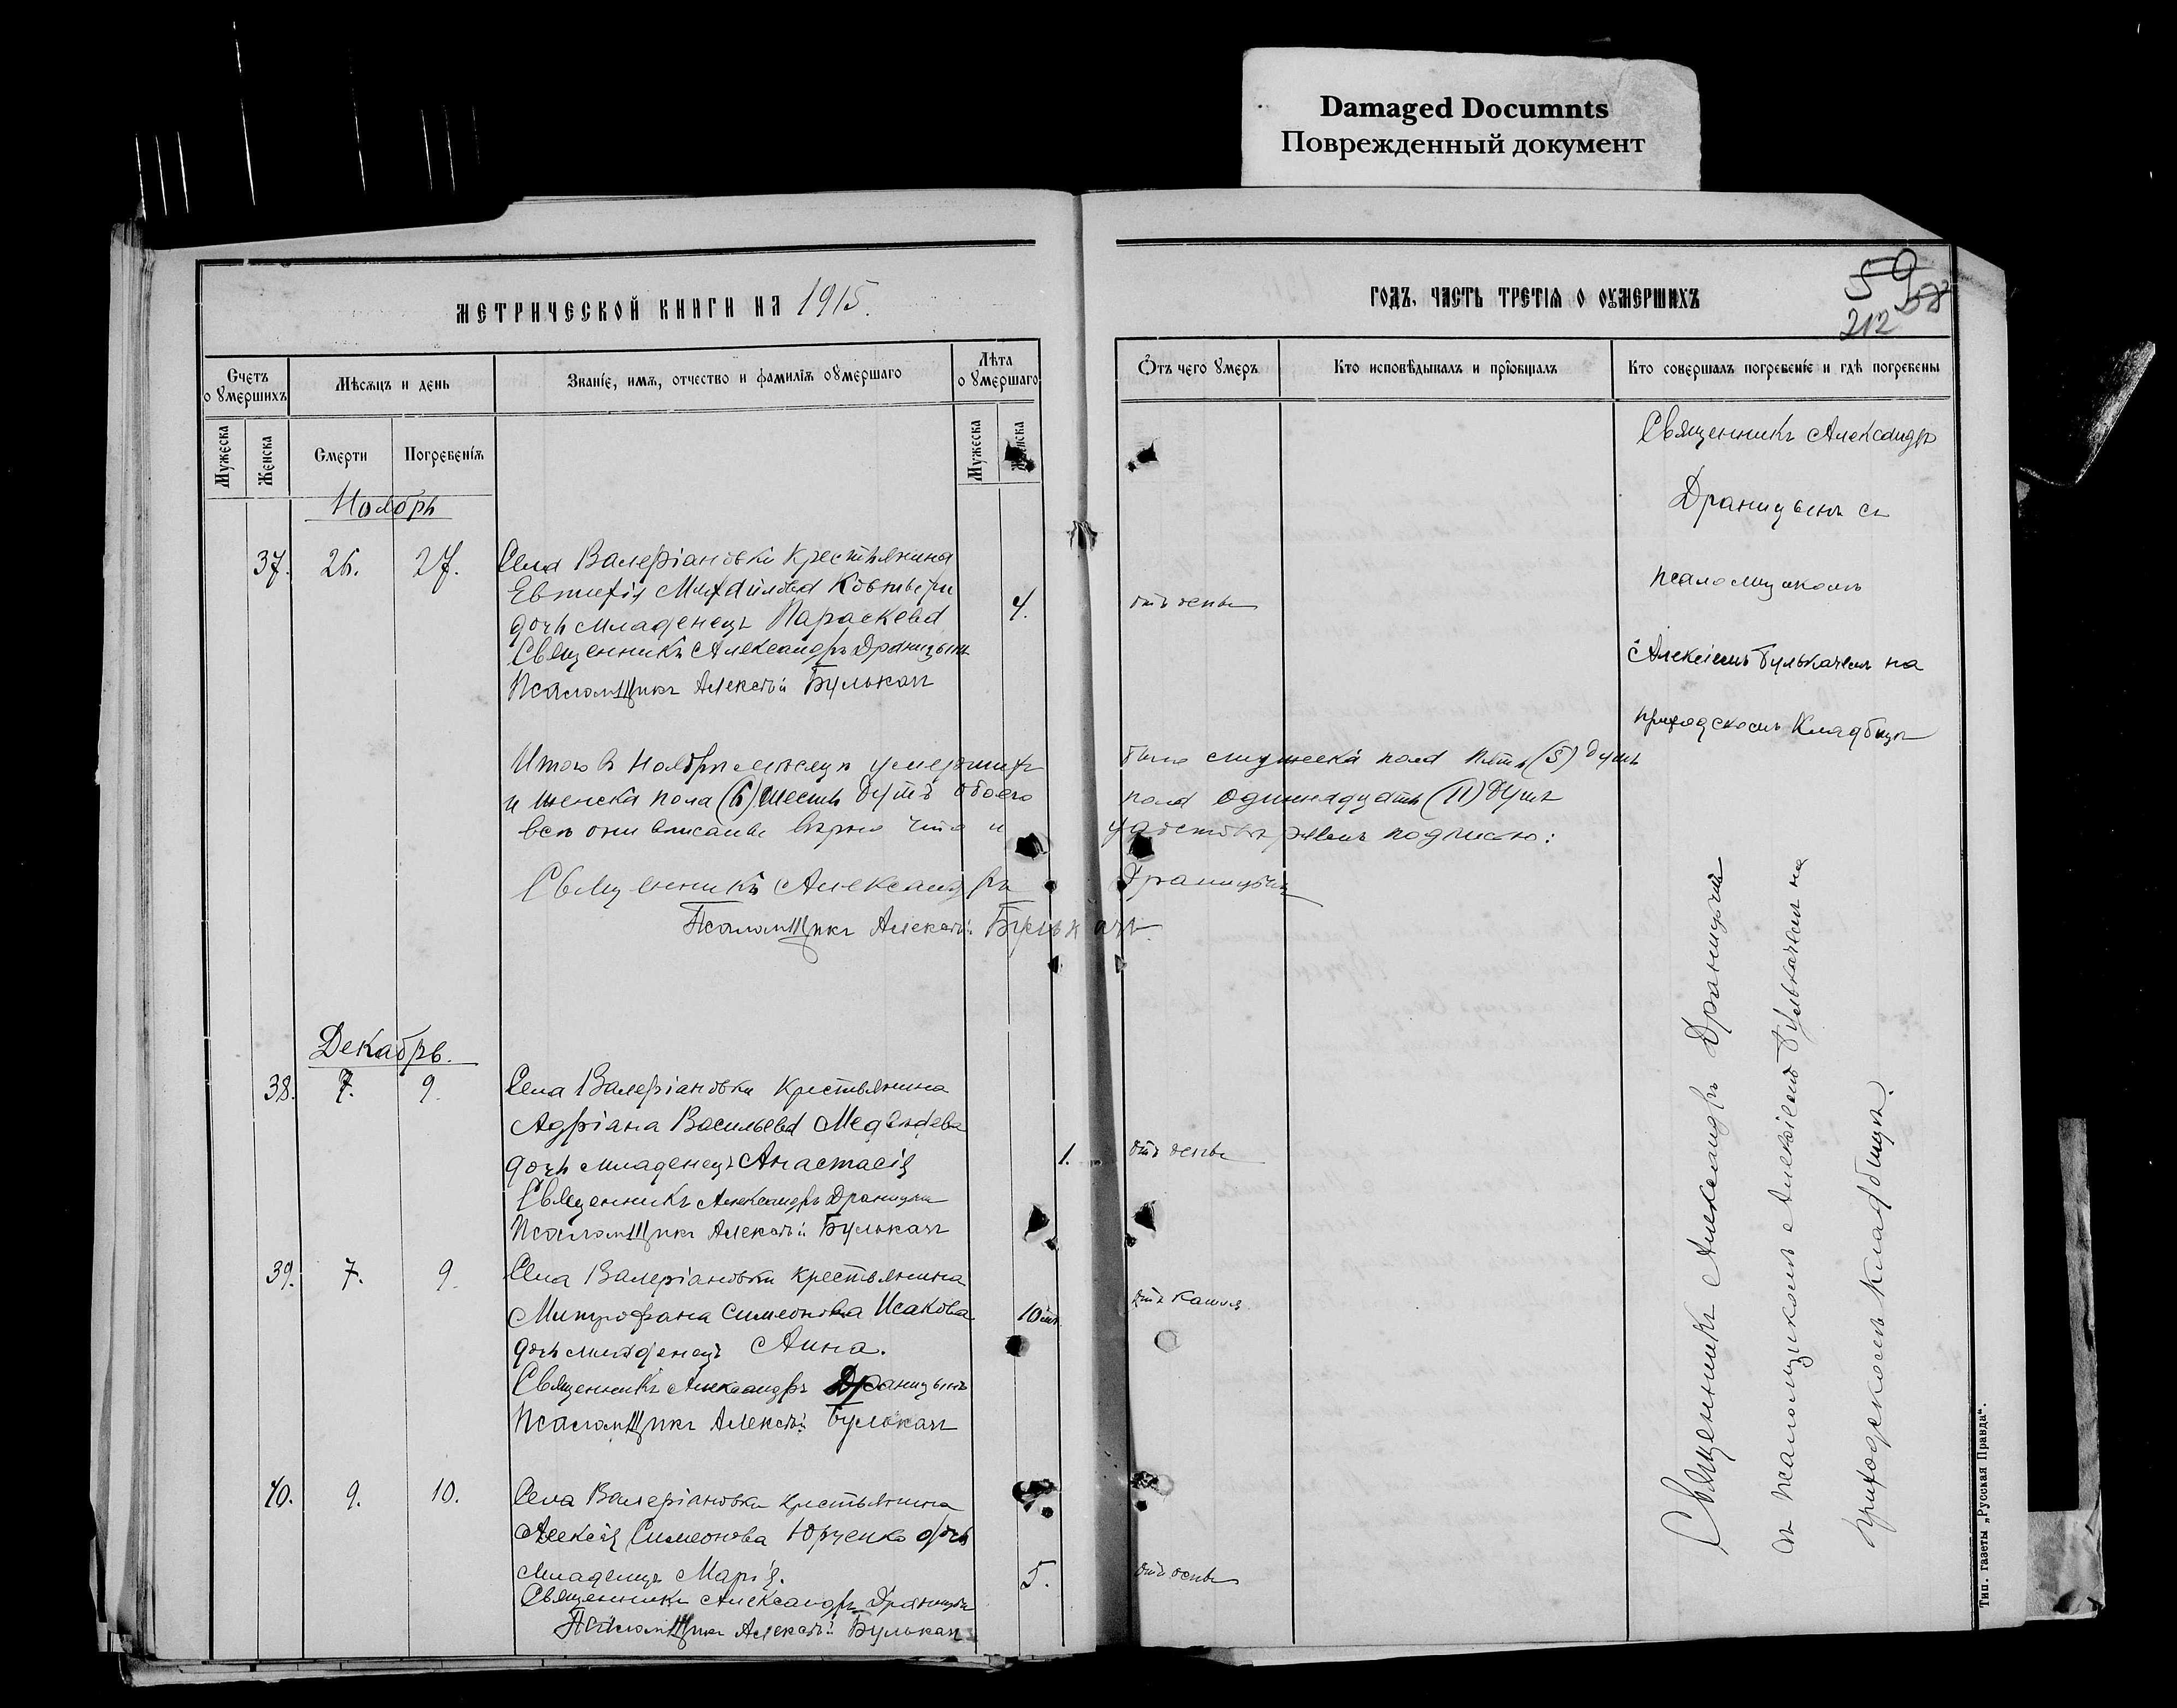 Damaged Documnts
Поврежденный документ
МЕТРИЧЕСКОЙ КНИГИ НА 1915.
ГОДЪ, ЧАСТЬ ТРЕТІЯ О ОУМЕРШИХЪ
59 58
212
Счетъ оумершихъ
Мѣсяцъ и день
Званіе, имя, отчество и фамилія оумершаго
Лѣта оумершаго
Отъ чего умеръ
Кто исповѣдывалъ и пріобщалъ
Кто совершалъ погребеніе и гдѣ погребены
Мужеска
Женска
Смерти
Погребенія
Мужеска
Женска
Ноябрь
37. 26. 27. Села Валеріановки крестьянина
Евтихія Михайлова
дочь младенецъ Параскева 4. отъ оспы
Священникъ Александръ Драницынъ
Псаломщикъ Алексѣй Булыкачъ
Священникъ Александръ
Драницынъ съ
псаломщикомъ
Алексіемъ Булыкачемъ на
приходскомъ кладбищѣ
Итого въ Ноябрѣ мѣсяцѣ умершихъ было мужеска пола пять (5) душъ
и женска пола (6) шесть душъ обоего пола одиннадцать (11) душъ
всѣ они вписаны вѣрно что и удостовѣряемъ подписью:
Священникъ Александръ Драницынъ
Псаломщикъ Алексѣй Булыкачъ
Декабрь.
38. 7. 9. Села Валеріановки крестьянина
Адріана Васильева Медвѣдева
дочь младенецъ Анастасія 1. отъ оспы
Священникъ Александръ Драницынъ
Псаломщикъ Алексѣй Булыкачъ
39. 7. 9. Села Валеріановки крестьянина
Митрофана Симеонова Исакова 10 м. отъ кашля
дочь младенецъ Анна.
Священникъ Александръ Драницынъ
Псаломщикъ Алексѣй Булыкачъ
40. 9. 10. Села Валеріановки крестьянина
Алексія Симеонова Юрченко дочь
младенецъ Марія. 5. отъ оспы
Священникъ Александръ Драницынъ
Псаломщикъ Алексѣй Булыкачъ
Священникъ Александръ Драницынъ
съ псаломщикомъ Алексіемъ Булыкачемъ на
приходскомъ кладбищѣ.
Тип. газеты „Русская Правда“.